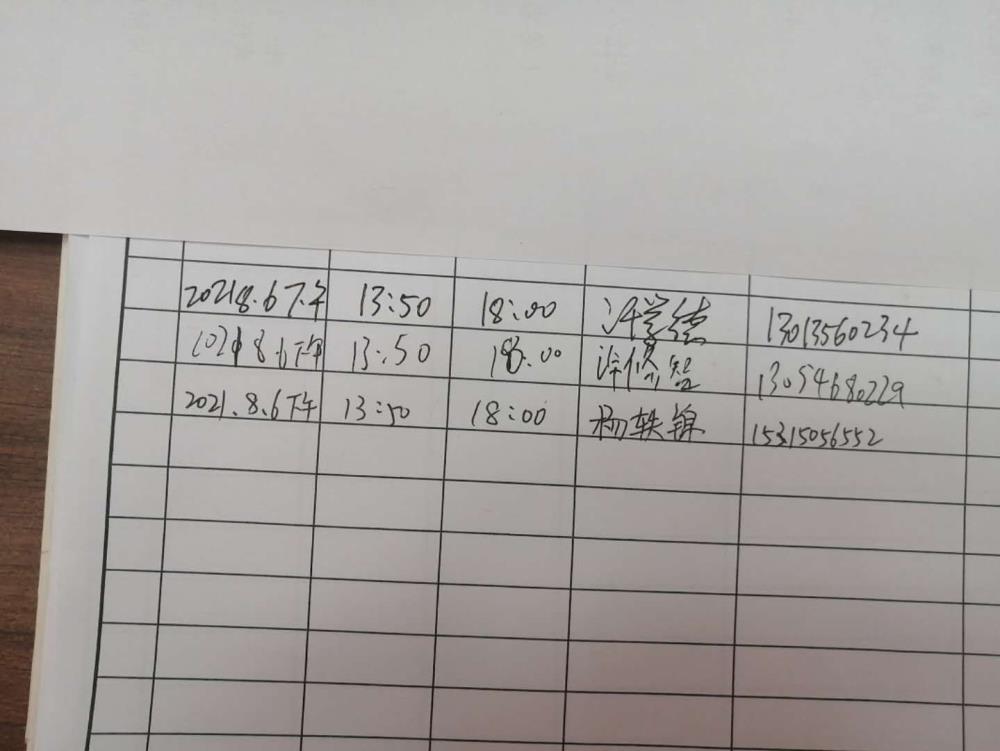 20218.6下午 13:50 18:00 许学德 13013560234
2021 8.6下午 13:50 18:00 修 13054680229
2021.8.6下午 13:50 18:00 杨轶锦 15315056552